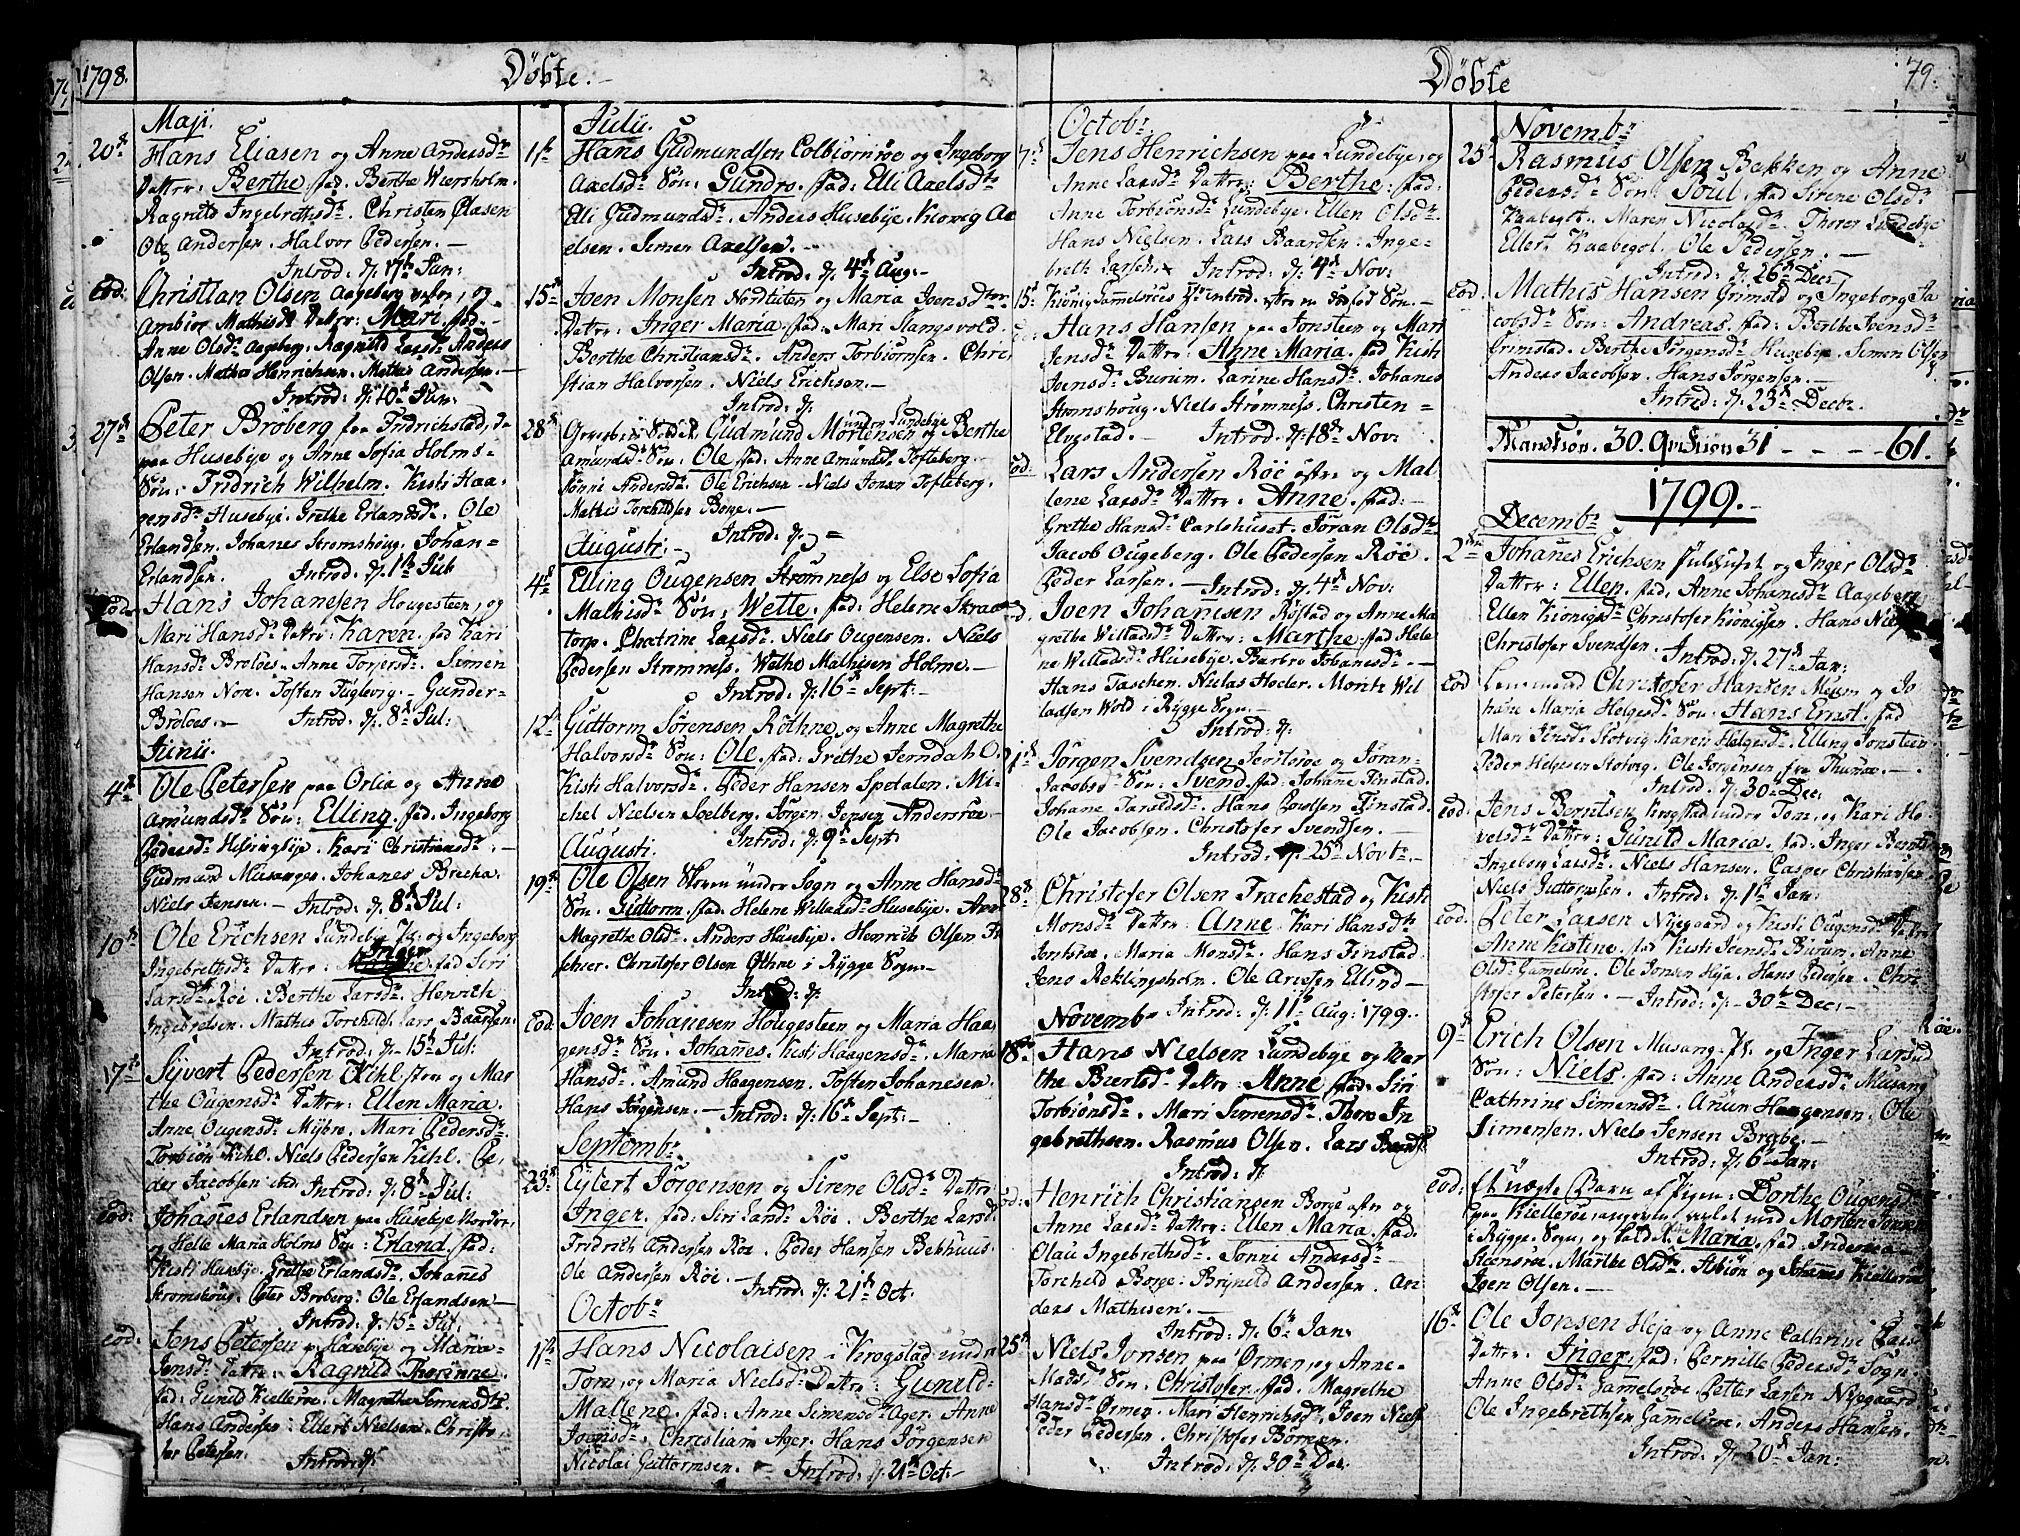 1798.
Döbte.
Maji.
20de Hans Eliasen og Anne Andersdr
Datter: Berthe. fad. Berthe Wiersholm.
Ragnild Ingelrethsdr. Christen Clasen
Ole Andersen. Halvor Pedersen. —
Introd: d. 17de Jun:
Eod: Christian Olsen Aageberg og
Ambior Mathisdr Datter: Mari. fad.
Anne Olsdr Aageberg. Ragnild Larsdr. Anders
Olsen. Mathis Henrichsen. Mathis Andersen. —
Introd: d. 10de Jun:
27de Peter Broberg fra Fridrichstad,
paa Husebye og Anne Sofia Holms
Sön: Fridrich Wilhelm. Kisti Haa-
gensdr Husebye. Grethe Erlandsdr. Ole
Erlandsen. Johanes Stromshoug. Johan=
Erlandsen. Introd: d. 1te Jul:
Eod: Hans Johanesen Hougesteen, og
Mari Hansdr Datter: Karen. fad Kari
Hansdr Broloes. Anne Torgersdr. Samen
Hansen Nore. Tosten Fuglevig. Gunder=
Broloes. — Introd: d. 8de Jul:
Junii.
4de Ole Petersen paa Orlia og Anne
Amundsdr Sön: Elling. fad. Ingeborg
Pedersdr Helsingbye. Kari Christiansdr
Gudmund Musanger. Johanes Brecha.
Niels Jensen. — Introd: d. 8de Jul:
10de Ole Erichsen Lundebye og Ingeborg
Inger
Ingebrethsdr Datter: fad Siri
Larsdr Röe. Berthe Larsdr. Henrich
Ingebretsen. Mathis Torchilds. Lars Baardsen.
Introd: d. 15de Jul:
17de Syvert Pedersen Kihl store og Mar
the Ougensdr Datter: Ellen Maria.
Anne Ougensdr Mÿbre. Mari Pedersdr.
Torbiön Kihl. Niels Pedersen Kehl. Pe-
der Jacobsen ibid. Introd: d. 8de Jul:
Eod: Johanes Erlandsen paa Husebye Nordre,
Helle Maria Holms Sön: Erland. fad:
Kisti Husebye. Grethe Erlandsdr. Johanes
Stromshoug. Peter Broberg. Ole Erlandsen —
Introd: d. 15de Jul:
Eod: Jens Petersen p. Husebye og Maria
Jensdr Datter: Ragnild Thorinne.
fad: Gunild Kiellerøe. Magrethe Simensdr.
Hans Andersen. Ellert Nielsen. Christo
fer Petersen. Introd: d.
Julii.
1te Hans Gudmundsen Colbiornröe og Ingeborg
Axelsdr Sön: Gundro. fad: Elli Axelsdr
Elli Gudmundsdr. Anders Husebye. Kiovig Ax
elsen. Simen Axelsen. —
Introd: d. 4de Aug:
15de Joen Monsen Nordtuten og Maria Joensdr
Datter: Inger Maria. fad. Mari Slangsvold.
Berthe Christiansdr. Anders Torbiörnsen. Chri
stian Halvorsen. Niels Erichsen. —
Introd: d.
28de Gudmund Mortensen under Lundebye og Berthe
Amundsdr Sön: Ole. fad: Anne Amundsdr Tofteberg.
Jönni Andersdr. Ole Erichsen. Niels Jonsen Tofteberg.
Mathis Torchildsen Borge. —
Introd: d.
Augusti. —
4de Elling Ougensen Strömness og Else Sofia
Mathisdr Sön: Wette. fad: Helene Skraa
torp. Chatrine Larsdr. Niels Ougensen. Niels
Pedersen Stromness. Wethe Mathisen Holme. —
Introd: d. 16de Sept:
12te Guttorm Sörensen Röthne, og Anne Magrethe
Halvorsdr Sön: Ole. fad: Grethe Jerndahl.
Kisti Halvorsdr. Peder Hansen Spetalen. Mi-
chel Nielsen Soelberg. Jörgen Jensen Andersröe
Introd: d. 9de Sept
Augusti.
19de Ole Olsen Skoven under Sogn og Anne Hansdr
Sön. Guttorm. fad: Helene Willadsdr Husebye.
Magrethe Olsdr. Anders Husebye. Henrich Olsen
Christofer Olsen Othne i Rygge Sogn. —
Introd: d.
Eod: Joen Johanesen Hougesteen og Maria Haa-
gensdr Sön: Johanes. Kisti Haagensdr. Maria
Hansdr. Amund Haagensen. Tosten Johanesen.
Hans Jörgensen. — Introd: d. 16de Sept:
Septembr.
23de Eylert Jörgensen og Sirene Olsdr Datter:
Inger. fad: Siri Larsdr Röe. Berthe Larsdr.
Fridrich Andersen Röe. Peder Hansen Bekhuus.
Ole Andersen Röe. — Introd: d. 21de Oct.
Octobr
1te Hans Nicolaisen i Krogstad under
Tom, og Maria Nielsdr Datter: Gunild
Mallene. fad: Anne Simensdr Ager. Anne
Joensdr. Christian Ager. Hans Jörgensen
Nicolai Guttormsen. — Introd: d. 21de Oct. —
Döbte
79.
Octobr
7de Jens Henrichsen paa Lundebye, og
Anne Larsdr Datter: Berthe: fad:
Anne Torbiönsdr Lundebye. Ellen Olsdr.
Hans Nielsen. Lars Baardsen. Inge-
breth Larsen. Introd: d. 4de Nov:
15. Sön. —
Hans Hansen paa Jonsteen og Mari
Jensdr Datter: Anne Maria. fad Kisti
Joensdr Burum. Larine Hansdr. Johanes
Stromshoug. Niels Strömness. Christen=
Elvestad. — Introd: d. 18de Nov:
Eod: Lars Andersen Röe östre og Mal
lene Larsdr Datter: Anne. fad:
Grethe Hansdr Carlshuset. Joran Olsdr
Jacob Ougeberg. Ole Pedersen Röe.
Peder Larsen. — Introd: d. 4de Nov:
Joen Johanesen Röstad og Anne Ma
grethe Willadsdr Datter: Marthe. fad Hele
ne Willadsdr Husebye. Barbro Johanesdr. —
Hans Taschen. Niclas Hoeler. Morits Wil
ladsen Wold i Rygge Sogn. —
Introd: d.
21de Jörgen Svendsen og Joran
Jacobsdr Sön: Svend. fad: Johane Finstad.
Johane Taraldsdr. Hans Povelsen Finstad.
Ole Jacobsen. Christofer Svendsen. —
Introd: d. 25de Novbr. —
28de Christofer Olsen Trachestad og Kisti
Monsdr Datter: Anne Kari Hansdr
Jonsröe. Maria Monsdr. Hans Finstad.
Jens Reklingsholm. Ole Arvesen Ellind —
Introd: d. 11te Aug: 1799.
Novembr
18de Hans Nielsen Lundebye og Mar
the Biertsdr Datter: Anne fad: Siri
Torbiönsdr. Mari Simensdr. Thore In
gebrethsen. Rasmus Olsen. Lars Baards
Introd: d.
Eod: Henrich Christiansen Borge östre og
Anne Larsdr Datter: Ellen Maria. fad.
Olau Ingebrethsdr. Jonni Andersdr
Torchild Borge: Brynild Andersen. An
ders Mathisen. —
Introd: d. 6te Jan:
25de Niels Jonsen paa Ørmen, og Anne
Madsdr Sön: Christofer. fad: Magrethe
Hansdr Ørmen. Mari Henrichsdr. Joen Niels
Peder Pedersen. Christofer Börresen.
Introd: d. 30de Dec:
Novembr
25de Rasmus Olsen Bakken og Anne
Pedersdr Sön: Poul. fad Sirene Olsdr
Kaabegot. Maren Nicolaisdr. Thorer Lundebye
Ellert Kaabegol. Ole Pedersen: —
Introd: d. 26de Dec:
Eod. Mathis Hansen Grimstd og Ingeborg Ja
cobsdr Sön: Andreas. fad: Berthe Joensdr
Grimstad. Berthe Jörgensdr Husebye. Simen Olsen
Anders Jacobsen. Hans Jörgensen. —
Introd: d. 23de Decbr.
Mandkiön. 30. Qvindkiön 31 - - - - 61.
1799. —
Decembr
2den Johanes Erichsen og Inger Olsdr
Datter: Ellen. fad. Anne Johanesdr Aageberg
Ellen Kionigsdr Christofer Kionigsen. Hans Niels
Christofer Svendsen. — Introd: d. 27de Jan:
Eod Christofer Hansen Meum og Jo
hane Maria Helgesdr Sön: Hans Ernst. fad
Mari Jensdr Skotvig Karen Helgesdr. Elling Jonsteen.
Peder Helgesen Skotvig. Ole Jörgensen fra Thunöe. —
Introd: d. 30de Dec:
Eod. Jens Berntsen Krogstad under Tom, og Kari Ho
velsdr Datter: Gunild Maria. fad: Inger Berntsdr
Ingeborg Larsdr. Niels Hansen. Casper Christiansen
Niels Guttormsen. Introd: d. 1te Jan:
Eod. Peter Larsen Nyegaard og Kisti Ougensdr Datter
Anne Kistine. fad Kisti Joensdr Burum. Anne
Olsdr Gamelröe. Ole Jonsen Heja. Hans Pedersen. Chri-
stofer Petersen. — Introd: d. 30te Dec: —
9de Erich Olsen Musang og Inger Larsdr
Sön: Niels. fad: Anne Andersdr Musang
Cathrine Simensdr. Arun Haagensen. Ole
Simensen. Niels Jensen Brabe. —
Introd: d. 6te Jan:
Eod: Et uægte Barn af Pigen: Dorthe Ougensdr
paa Kielleröe, angiven avlet med Morten Jonsen
i Rygge Sogn, og kaldet Maria. fad. Friderica
Steensröe. Marthe Olsdr. Asbiön og Johanes Kielleröe
Joen Olsen. —
16de Ole Jonsen Heja og Anne Cathrine Larsdr
Datter: Inger. fad: Pernille Pedersdr Sogn.
Anne Olsdr Gamelsröe. Petter Larsen Nyegaard
Ole Ingebrethsen Gamelsröe. Anders Hansen.
Introd: d. 20de Jan: